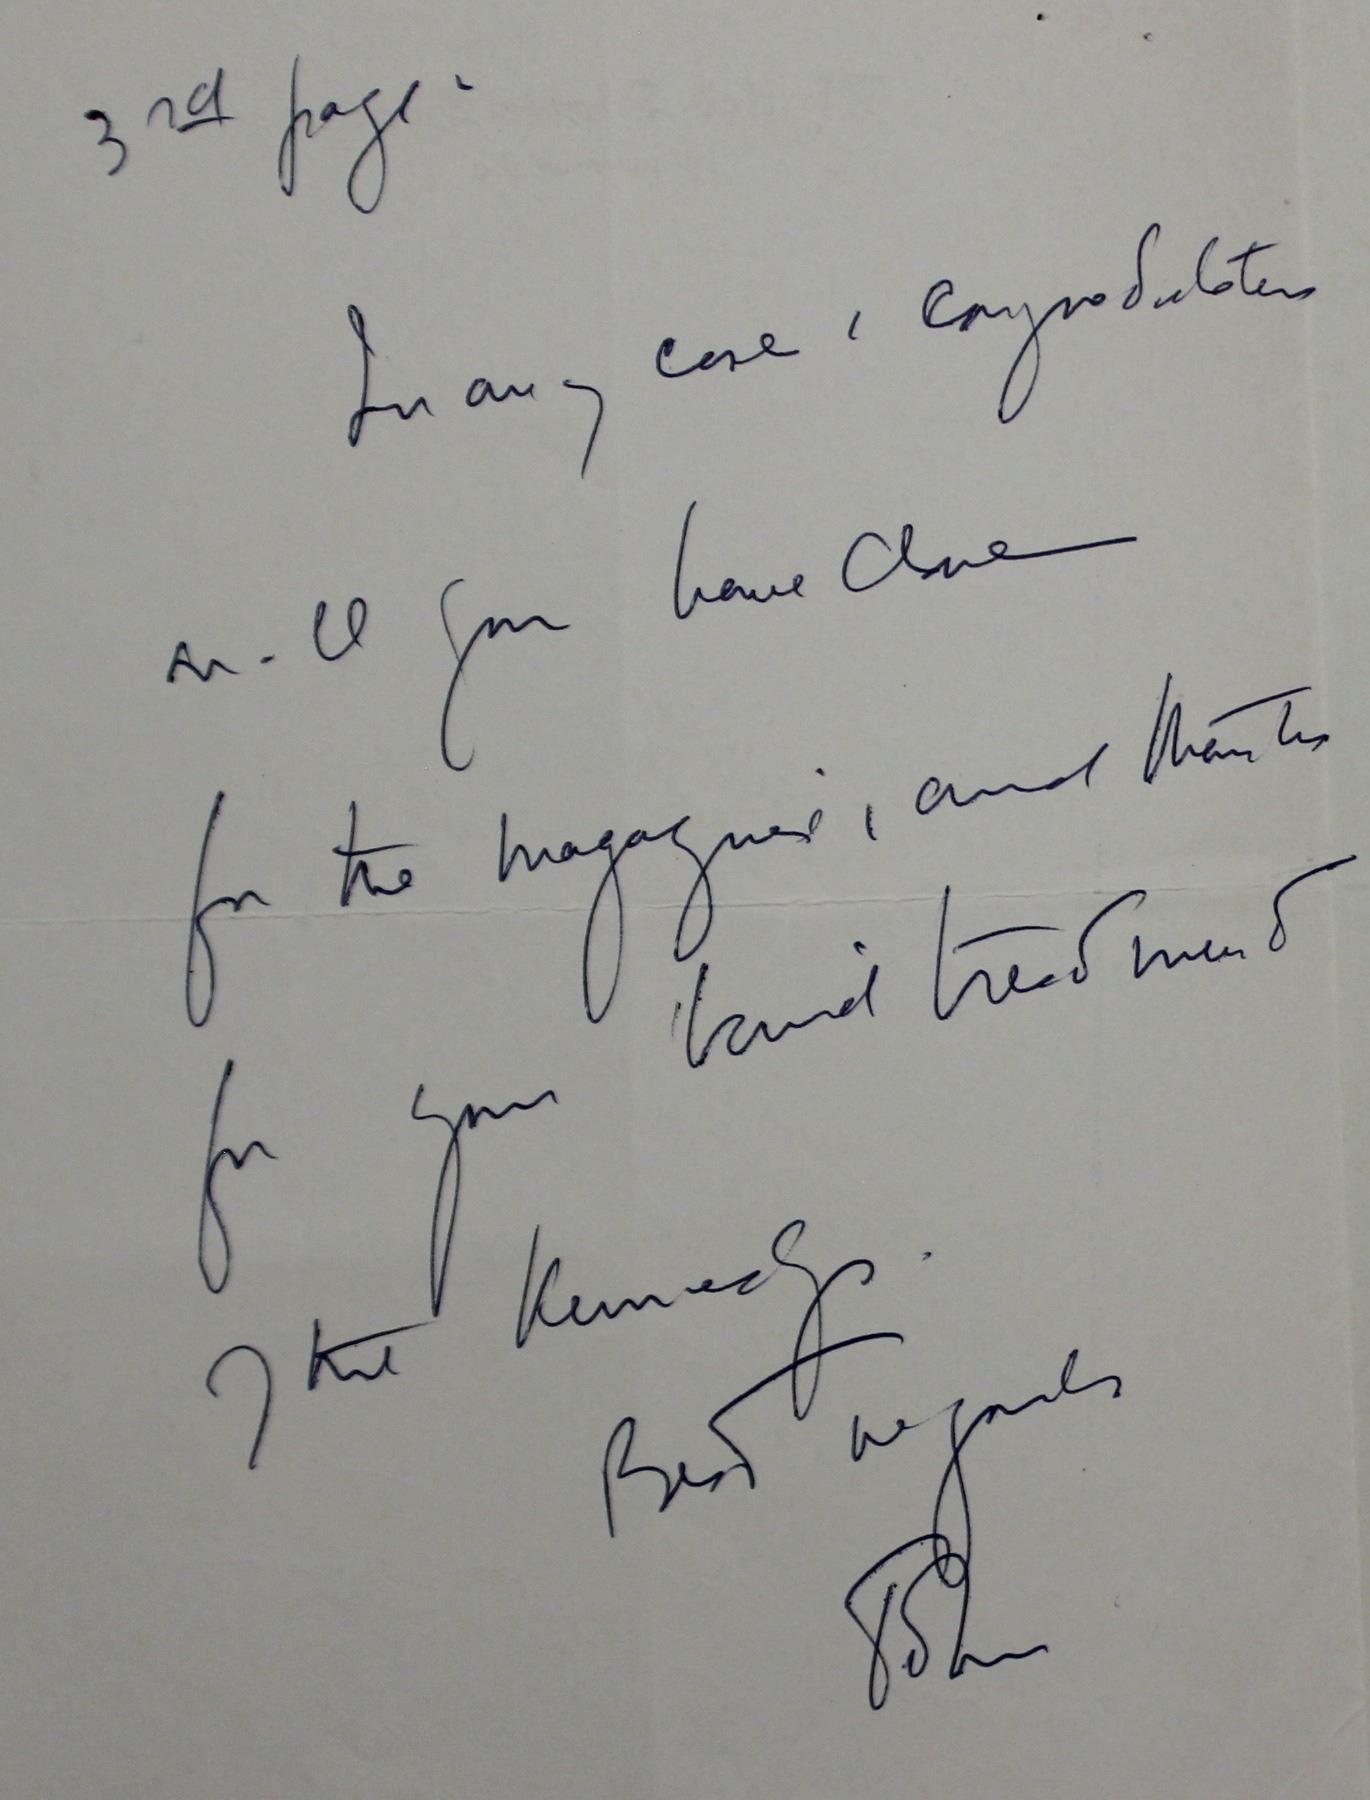 3rd page.
In any case, congratulations
on all you have done
for the magazine, and thanks
for your kind treatment
of the Kennedys.
Best regards
John